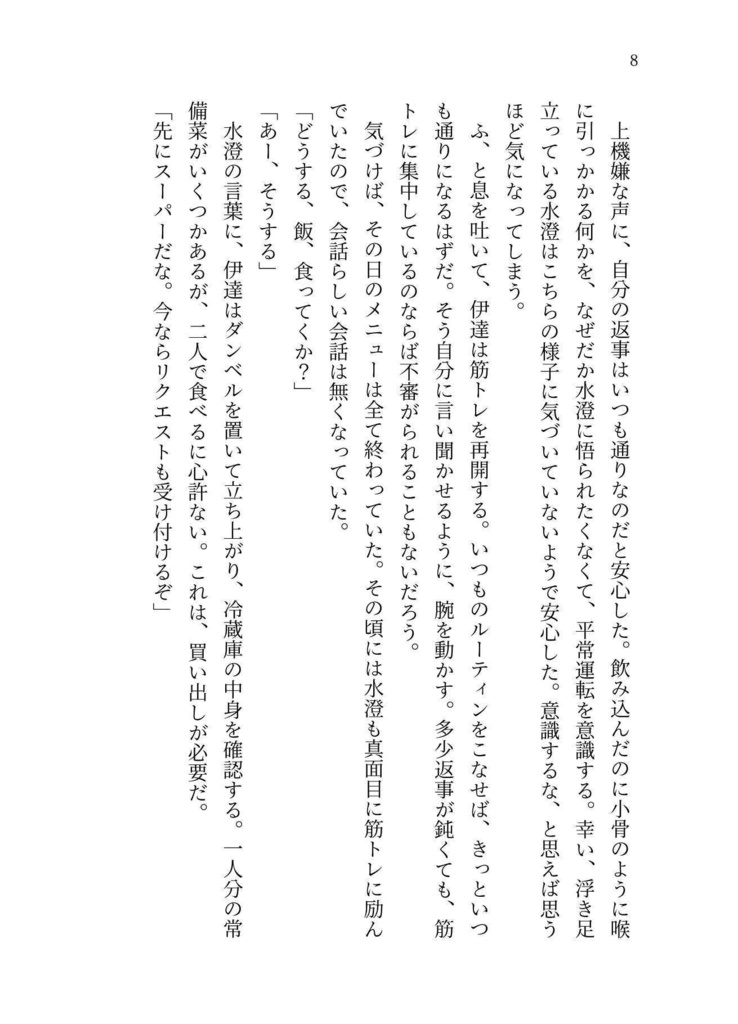 8
上機嫌な声に、自分の返事はいつも通りなのだと安心した。飲み込んだのに小骨のように喉
に引っかかる何かを、なぜだか水澄に悟られたくなくて、平常運転を意識する。幸い、浮き足
立っている水澄はこちらの様子に気づいていないようで安心した。意識するな、と思えば思う
ほど気になってしまう。
ふ、と息を吐いて、伊達は筋トレを再開する。いつものルーティンをこなせば、きっといつ
も通りになるはずだ。そう自分に言い聞かせるように、腕を動かす。多少返事が鈍くても、筋
トレに集中しているのならば不審がられることもないだろう。
気づけば、その日のメニューは全て終わっていた。その頃には水澄も真面目に筋トレに励ん
でいたので、会話らしい会話は無くなっていた。
「どうする、飯、食ってくか?」
「あー、そうする」
水澄の言葉に、伊達はダンベルを置いて立ち上がり、冷蔵庫の中身を確認する。一人分の常
備菜がいくつかあるが、二人で食べるに心許ない。これは、買い出しが必要だ。
「先にスーパーだな。今ならリクエストも受け付けるぞ」